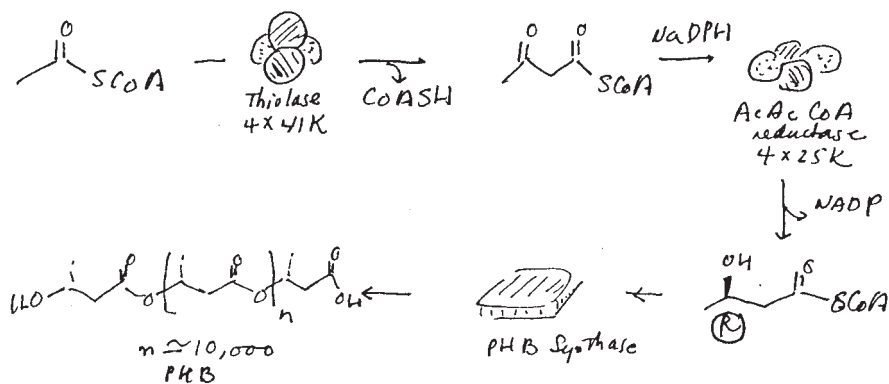 O
SCoA
Thiolase
4 × 41K
CoASH
O O
SCoA
NaDPH
AcAc CoA
reductase
4 × 25K
NADP
OH
O
SCoA
R
PHB Synthase
HO
O
O
O
O
O
OH
n
n ≃ 10,000
PHB